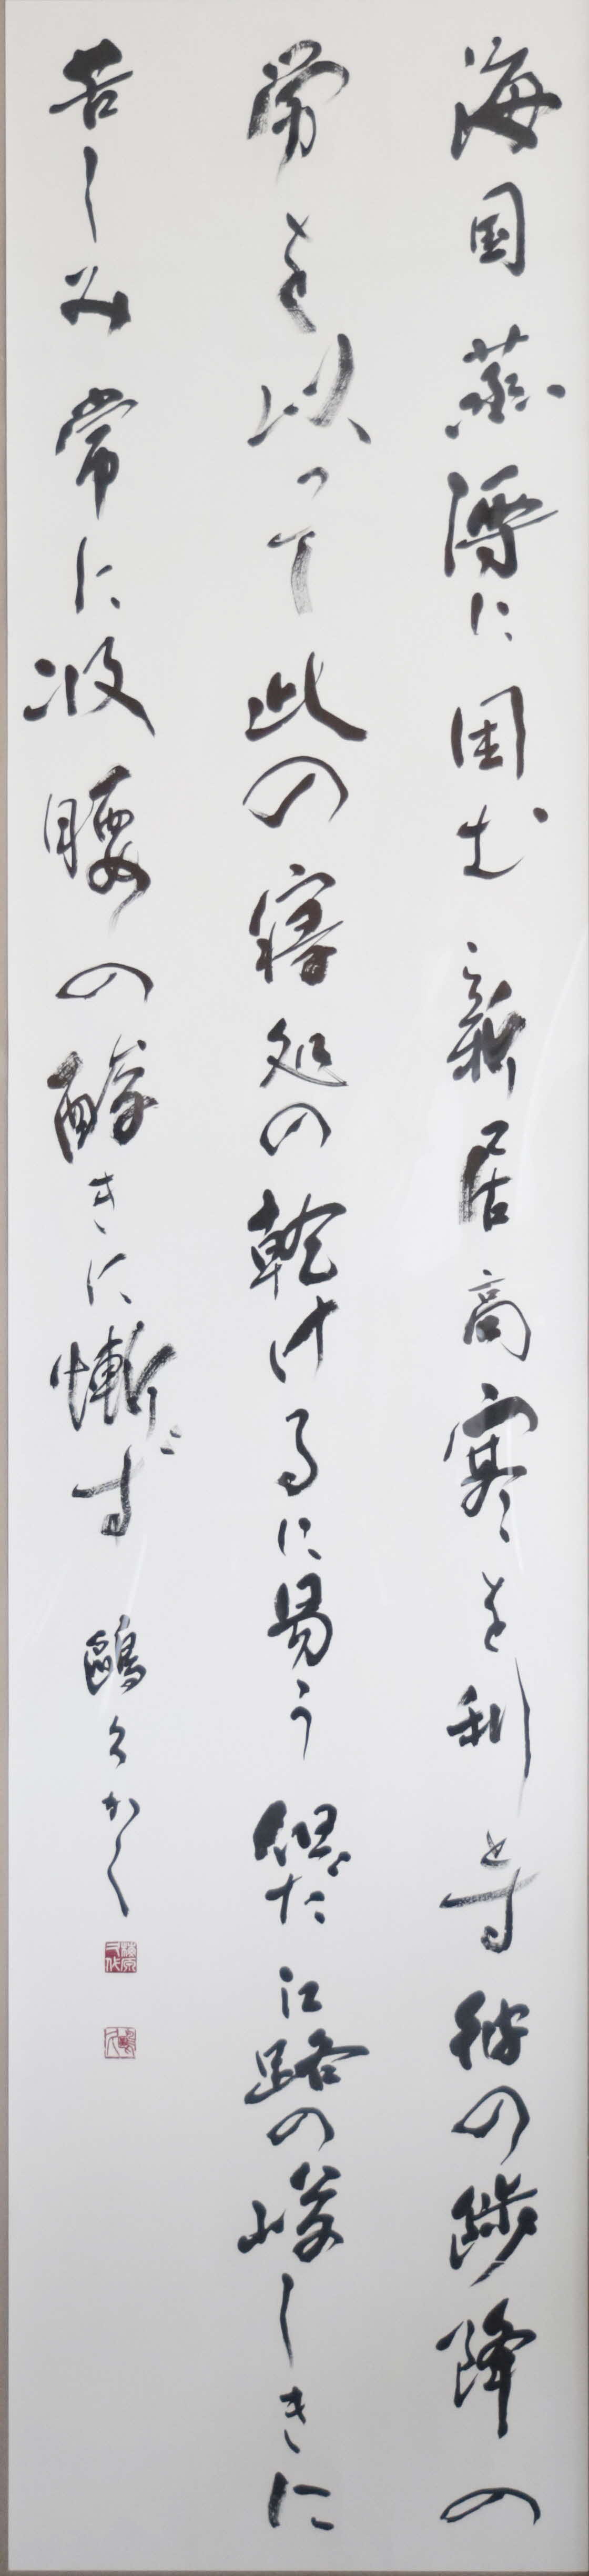 海国蒸溽に困む新居高寒を利とす彼の陟降の
労を以って此の寝処の乾けるに易う但だ江路の峻しきに
苦しみ常に汲腰の酸きに慚ず 鷗久かく